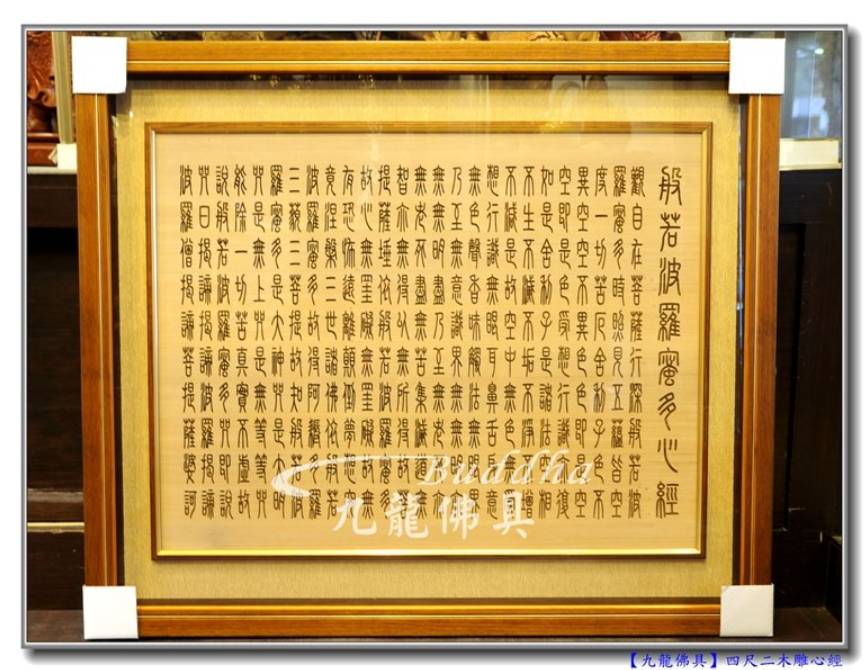 般若波羅蜜多心經
觀自在菩薩行深般若波
羅蜜多時照見五蘊皆空
度一切苦厄舍利子色不
異空空不異色色即是空
空即是色受想行識亦復
如是舍利子是諸法空相
不生不滅不垢不淨不增
不減是故空中無色無受
想行識無眼耳鼻舌身意
無色聲香味觸法無眼界
乃至無意識界無無明亦
無無明盡乃至無老死亦
無老死盡無苦集滅道無
智亦無得以無所得故菩
提薩埵依般若波羅蜜多
故心無罣礙無罣礙故無
有恐怖遠離顛倒夢想究
竟涅槃三世諸佛依般若
波羅蜜多故得阿耨多羅
三藐三菩提故知般若波
羅蜜多是大神咒是大明
咒是無上咒是無等等咒
能除一切苦真實不虛故
說般若波羅蜜多咒即說
咒曰揭諦揭諦波羅揭諦
波羅僧揭諦菩提薩婆訶
Buddha
九龍佛具
【九龍佛具】四尺二木雕心經